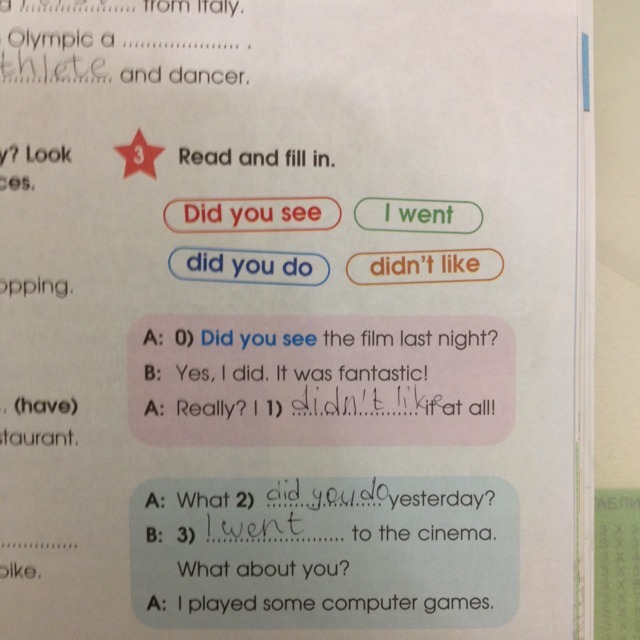 from Italy.
Olympic a .................... .
thlete and dancer.
y? Look
ces.
3 Read and fill in.
Did you see I went
did you do didn't like
opping.
A: 0) Did you see the film last night?
B: Yes, I did. It was fantastic!
.. (have) A: Really? I 1) didn't like it at all!
staurant.
A: What 2) did you do yesterday?
B: 3) I went to the cinema.
What about you?
bike.
A: I played some computer games.
АБЛИ